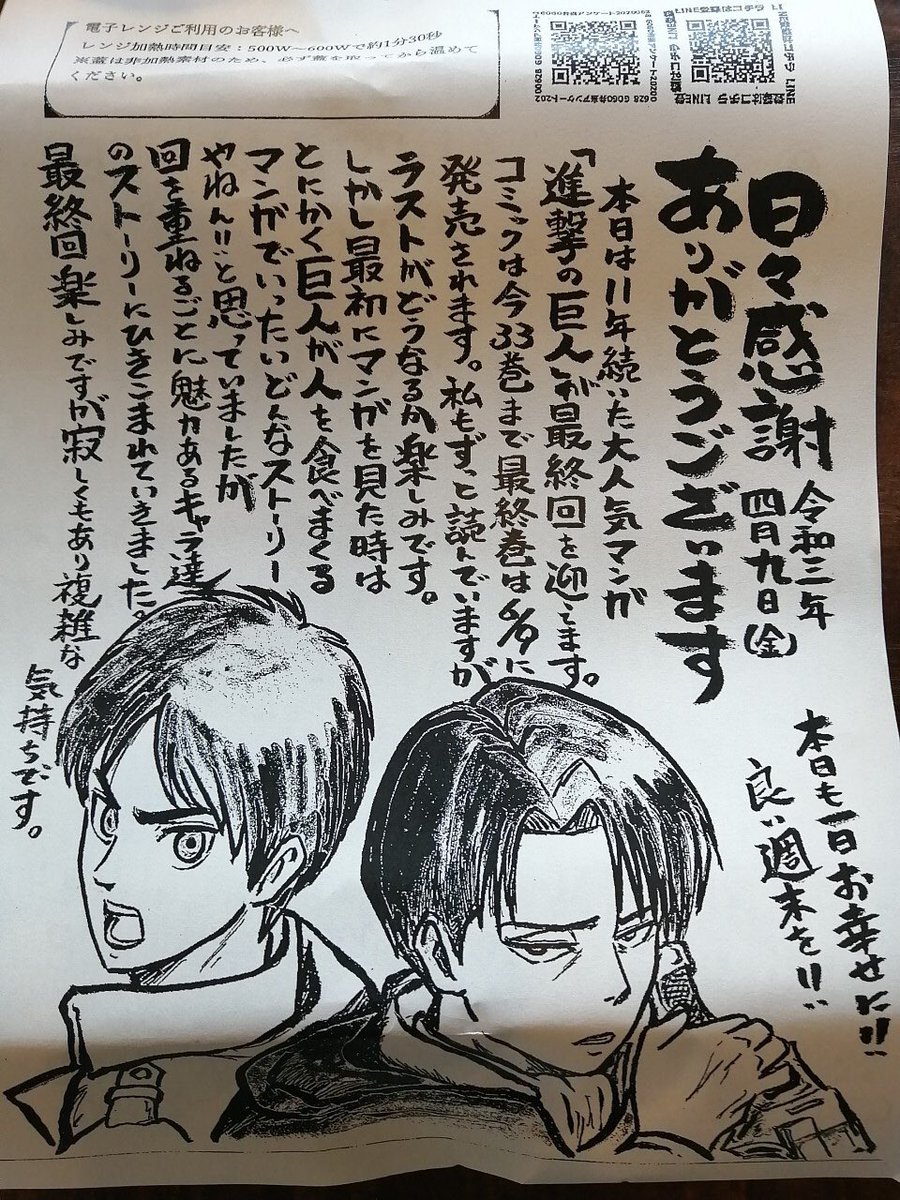 電子レンジご利用のお客様へ
レンジ加熱時間目安：500W～600Wで約1分30秒
※蓋は非加熱素材のため、必ず蓋を取ってから温めて
ください。
LINE登録はコチラ
日々感謝
令和三年
四月九日(金)
ありがとうございます
本日は11年続いた大人気マンガ
「進撃の巨人」が最終回を迎えます。
コミックは今33巻まで最終巻は6/9に
発売されます。私もずっと読んでいますが
ラストがどうなるか楽しみです。
しかし最初にマンガを見た時は
とにかく巨人が人を食べまくる
マンガでいったいどんなストーリー
やねん!!と思っていましたが
回を重ねるごとに魅力あるキャラ達
のストーリーにひきこまれていきました。
最終回楽しみですが寂しくもあり複雑な
気持ちです。
本日も一日お幸せに!!
良い週末を!!